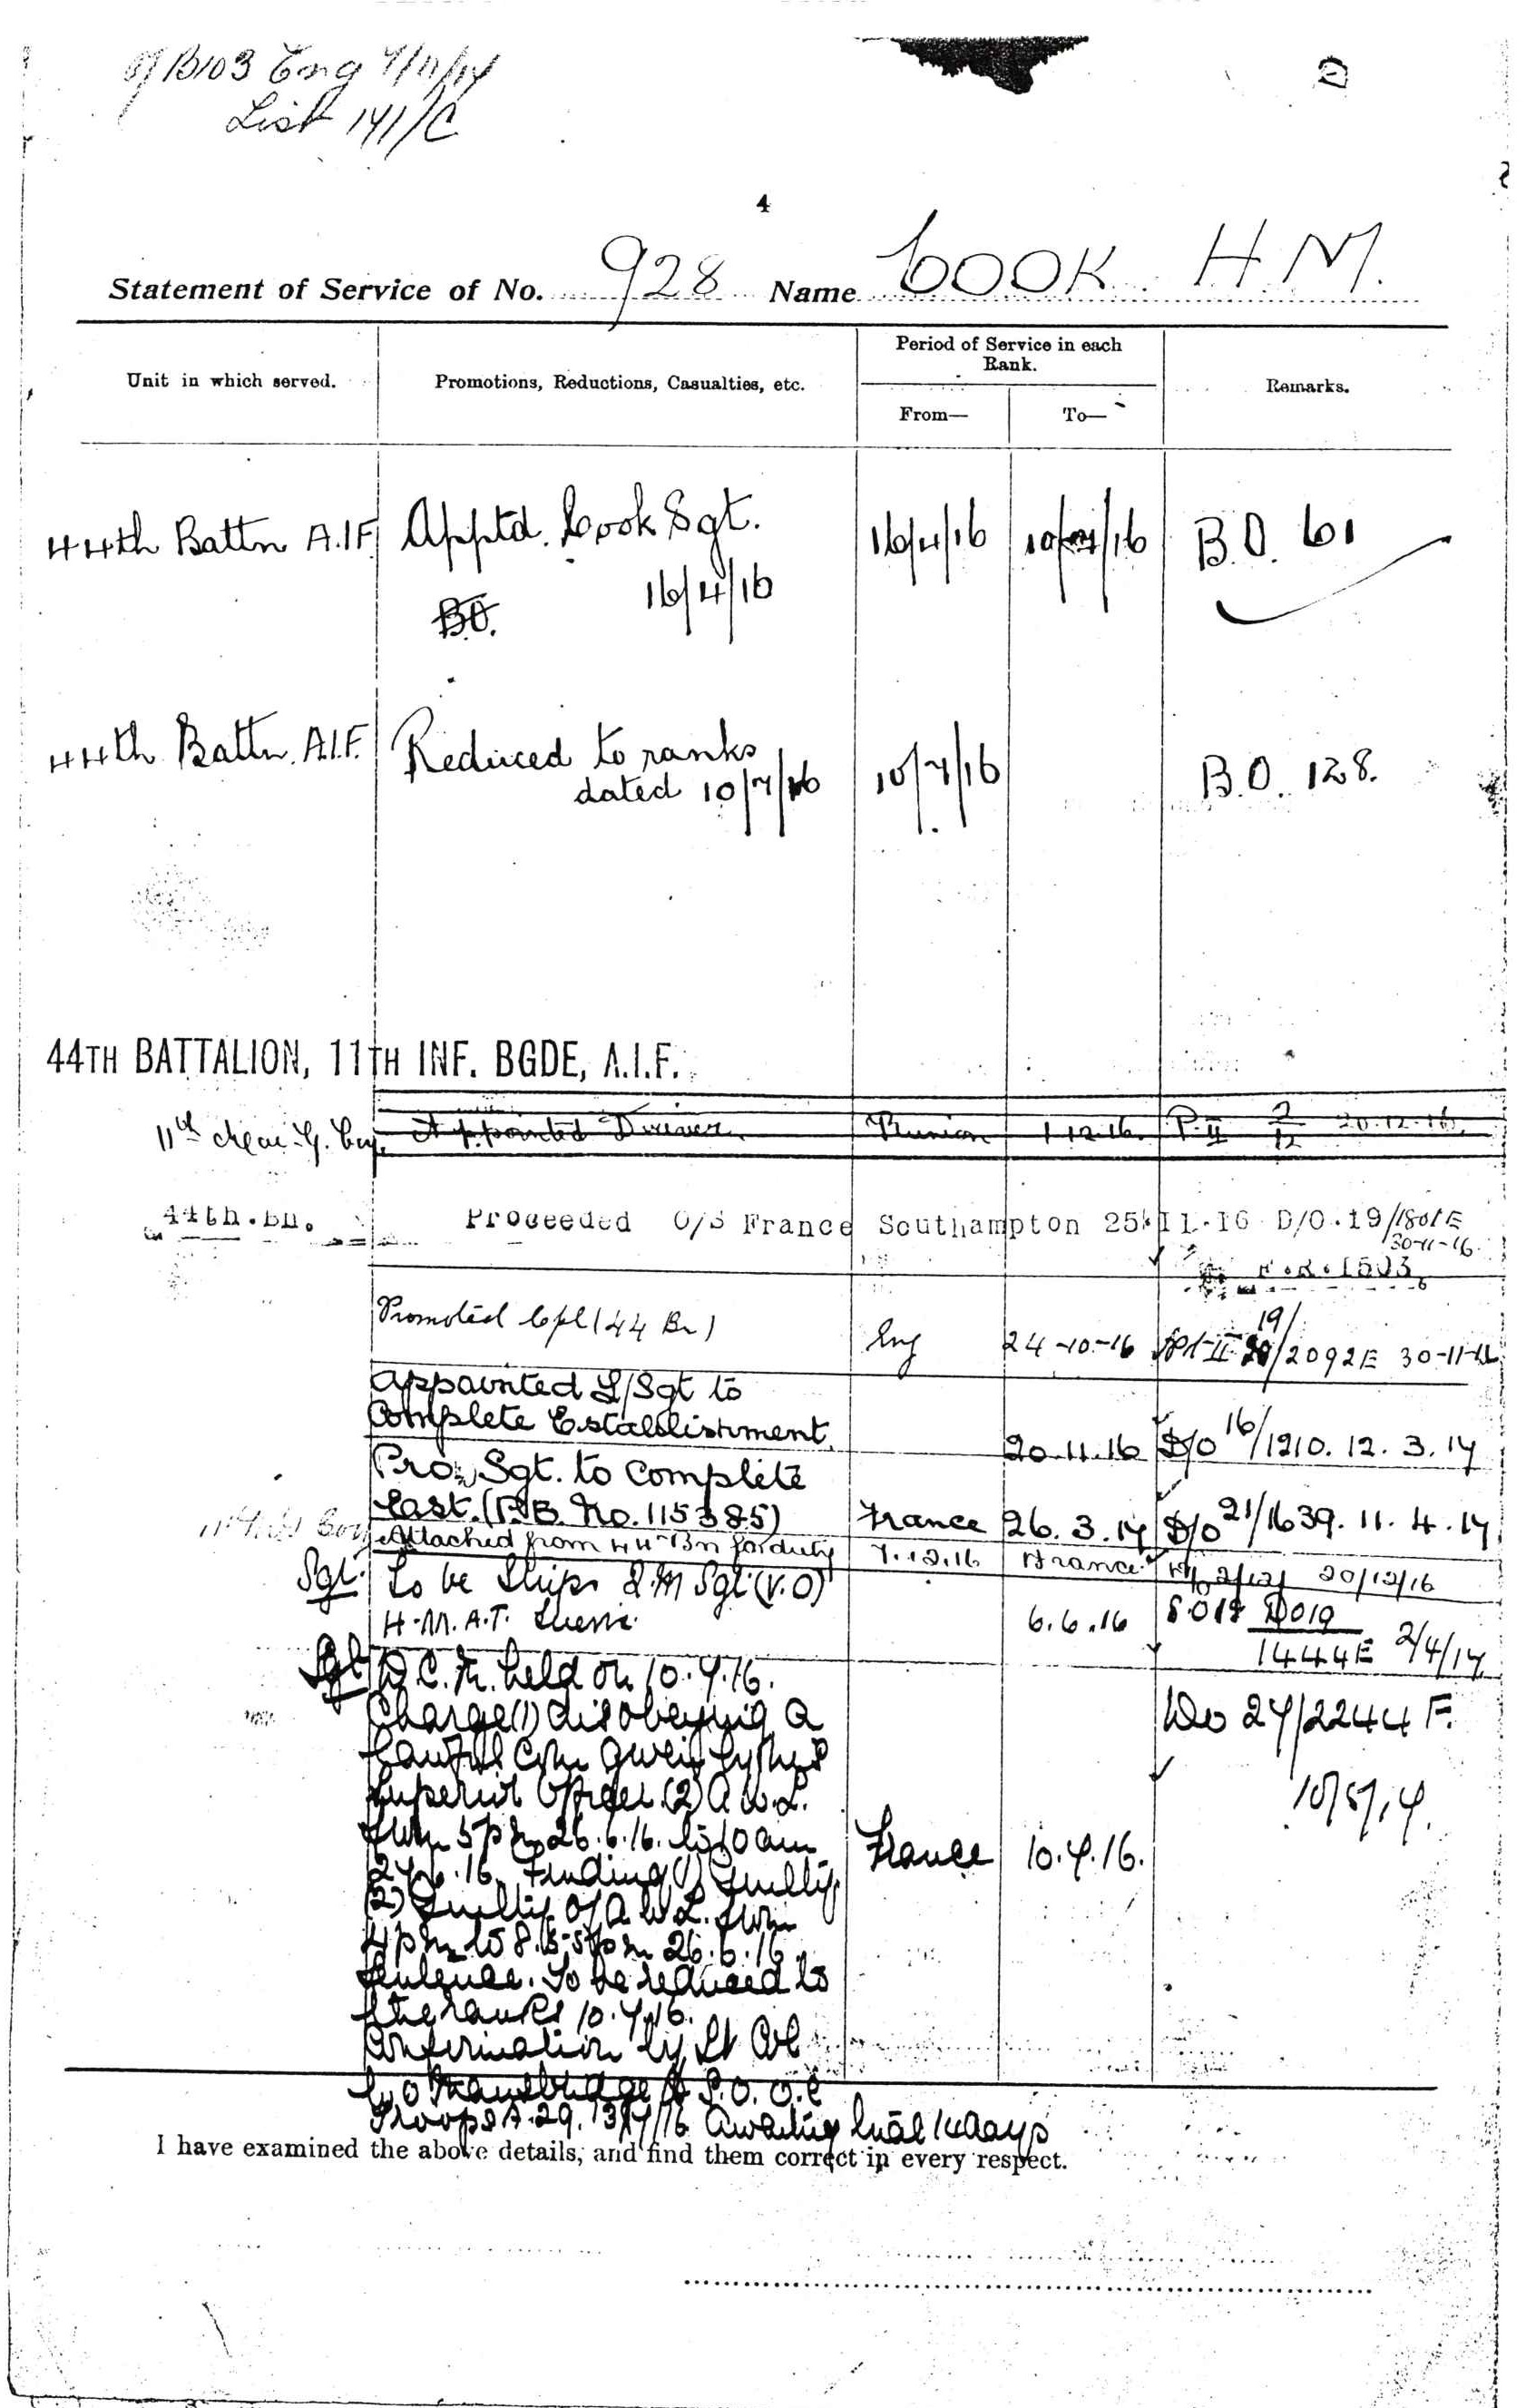 B103 Eng 7/11/17
List 141/C
4
Statement of Service of No. 928 Name COOK H.M.
Unit in which served. Promotions, Reductions, Casualties, etc. Period of Service in each Rank. From— To— Remarks.
44th Battn A.I.F. Apptd. Cook Sgt. 16/4/16 10/7/16 B.O. 61
16/4/16
B.O.
44th Battn. A.I.F. Reduced to ranks
dated 10/7/16 10/7/16 B.O. 128.
44TH BATTALION, 11TH INF. BGDE, A.I.F.
11th Mac. G. Coy. Appointed Driver 1-12-16. P. II 2/12 20.12.16.
44th.Bn. Proceeded O/S France Southampton 25-11-16 D/O.19/1801E
30-11-16
F.R.1503
Promoted Cpl (44 Bn) Eng 24-10-16 19/2092E 30-11-16
Appointed L/Sgt to
Complete Establishment. 20.11.16 D/O 16/1210. 12.3.17
Pro. Sgt. to Complete
East. (P.B. No. 115385) France 26.3.17 D/O 21/1639. 11.4.17
Attached from 44th Bn for duty 7.12.16 France 2/12/ 20/12/16
Sgt. To be Ships Q.M Sgt (V.O) 6.6.16 DO19
H.M.A.T. 1444E 2/4/17
Sgt D.C.M. held on 10.7.16.
Charge (1) disobeying a Do 27/2244 F.
Lawful Com given by his
Superior Officer. (2) A.W.L. 10/5/17.
from 5 pm 26.6.16. to 10 am
27.6.16. Finding (1) Guilty France 10.7.16.
(2) Guilty of A.W.L. from
4 pm to 8.15-5 pm 26.6.16.
Sentence. To be reduced to
the ranks 10.7.16.
Confirmation by Lt Col
O.C
Troops A.29. 13/7/16 Awaiting trial 14 days
I have examined the above details, and find them correct in every respect.